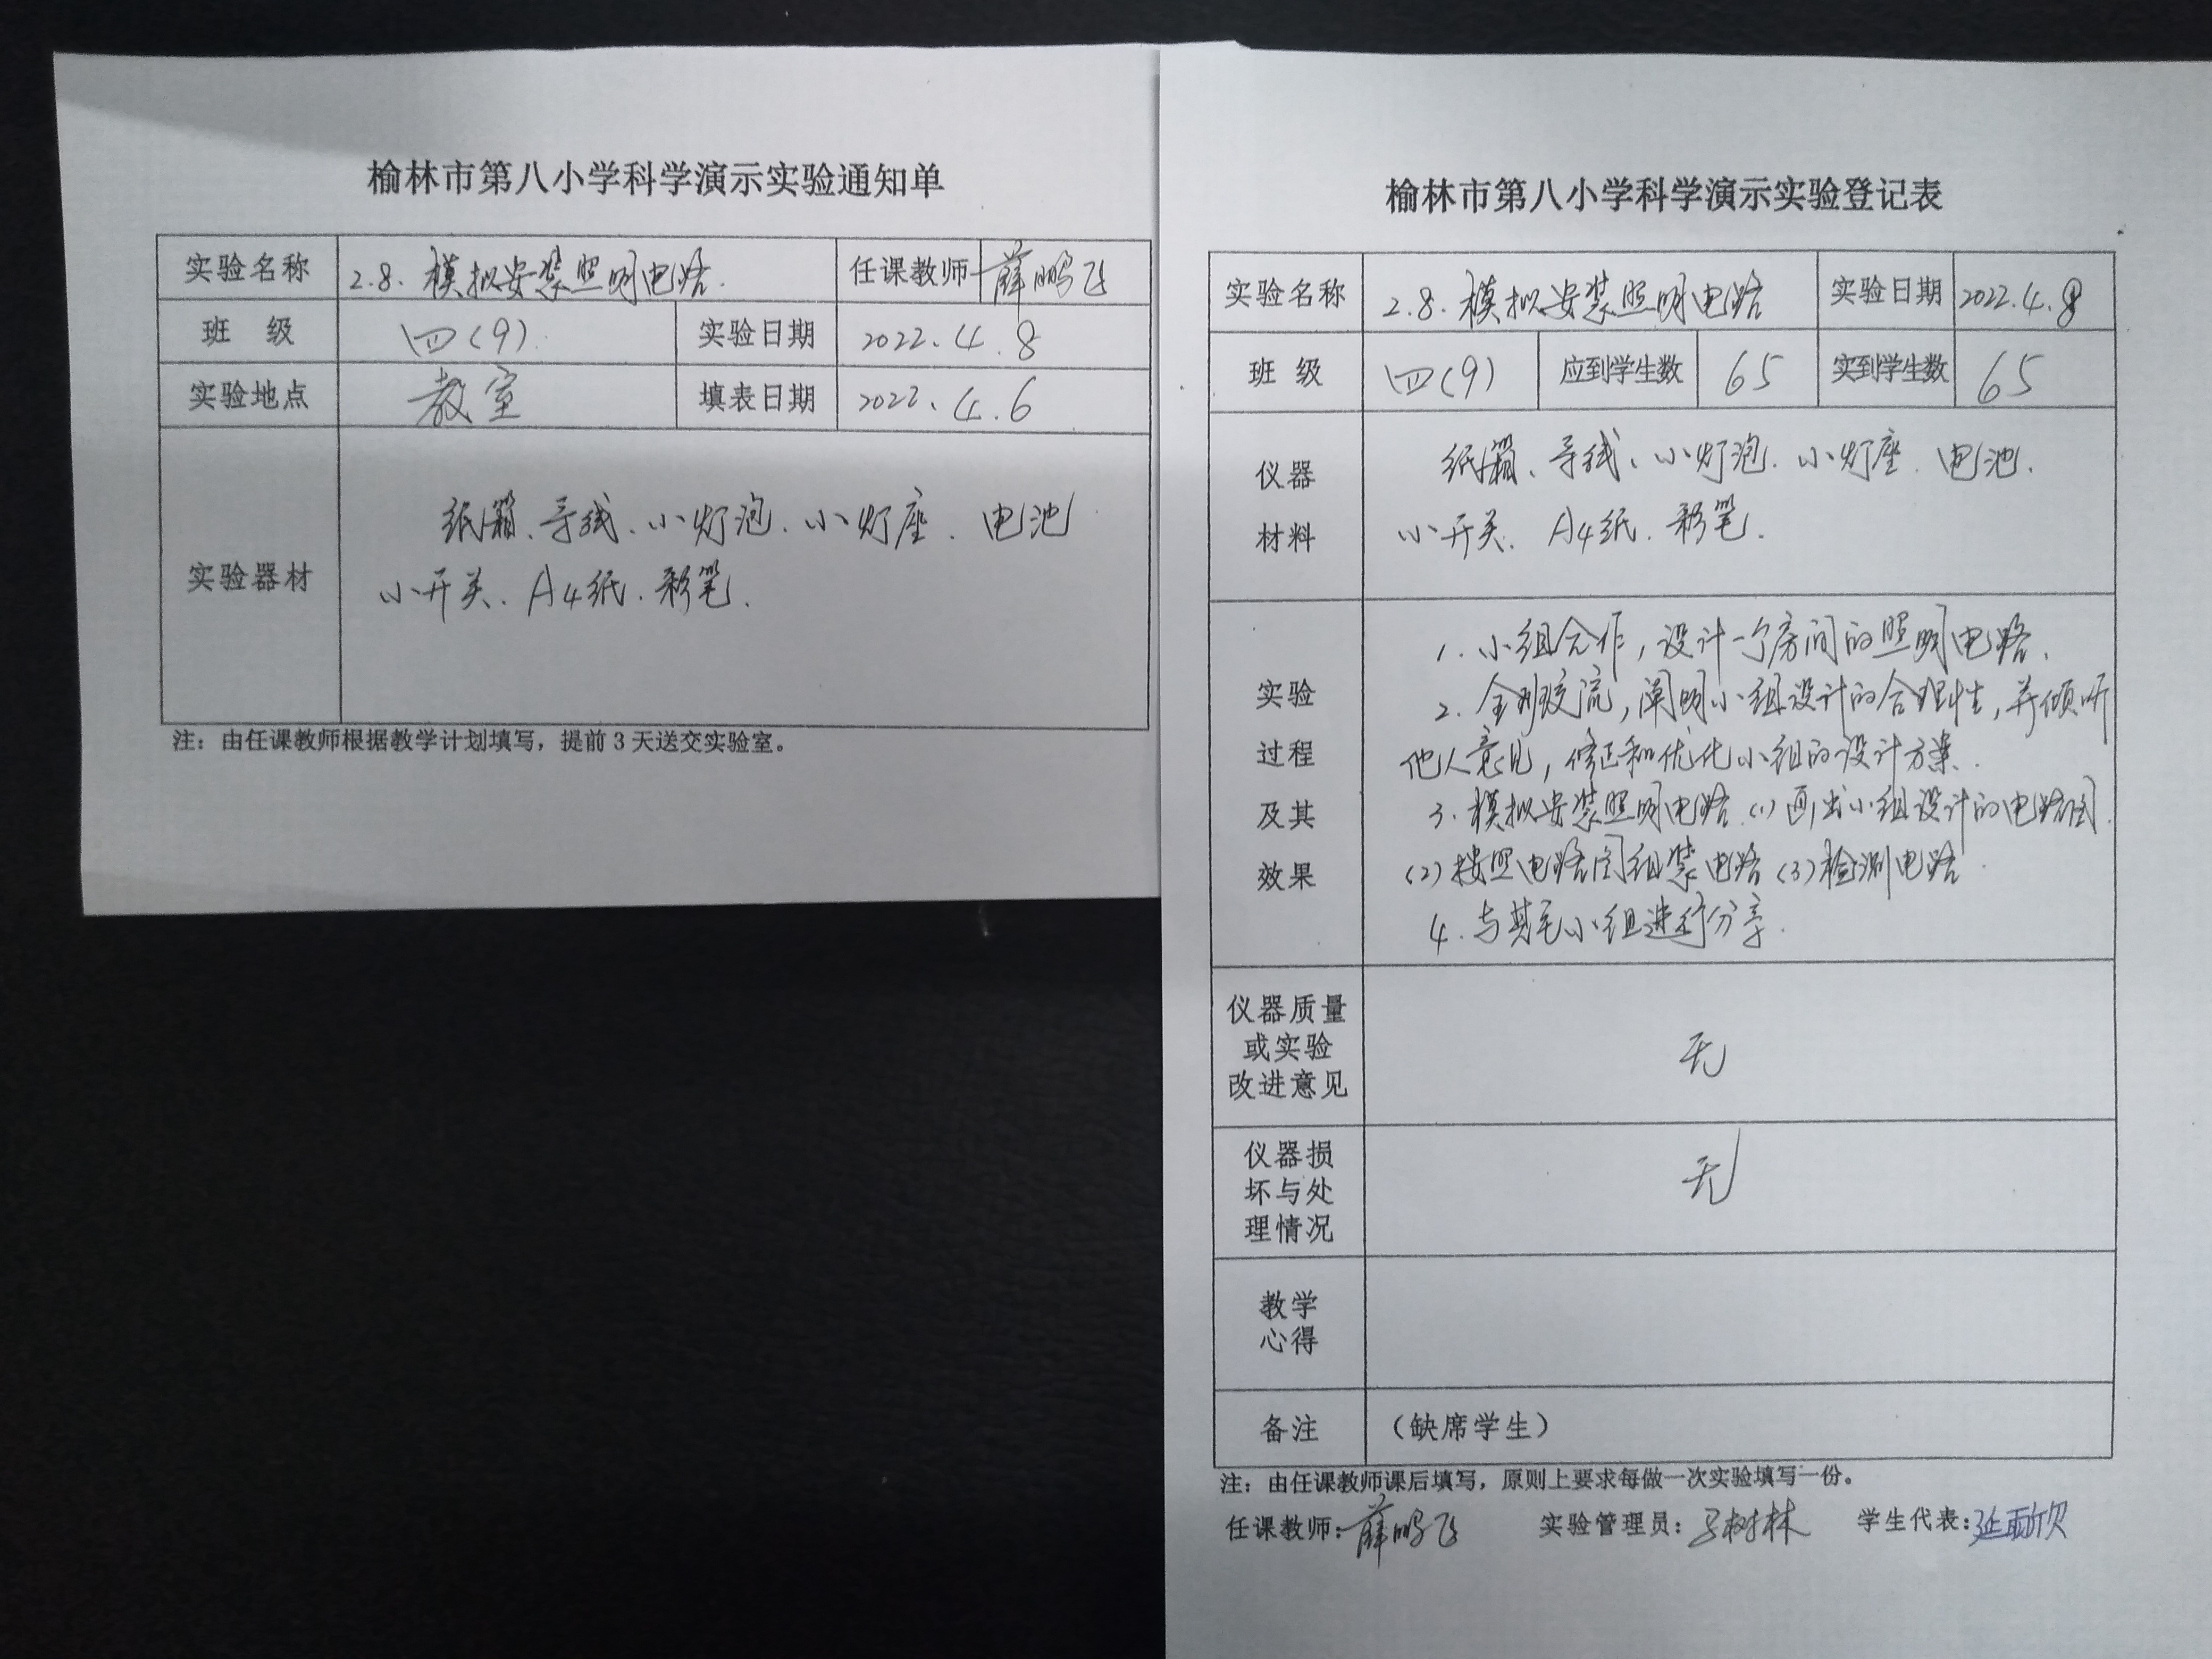 榆林市第八小学科学演示实验通知单
实验名称 2.8.模拟安装照明电路. 任课教师 薛鹏飞
班 级 四(9). 实验日期 2022.4.8
实验地点 教室 填表日期 2022.4.6
实验器材
纸箱、导线、小灯泡.小灯座.电池
小开关、A4纸.彩笔.
注：由任课教师根据教学计划填写，提前3天送交实验室。
榆林市第八小学科学演示实验登记表
实验名称 2.8.模拟安装照明电路 实验日期 2022.4.8
班 级 四(9) 应到学生数 65 实到学生数 65
仪器
材料
纸箱、导线、小灯泡.小灯座.电池.
小开关.A4纸.彩笔.
实验
过程
及其
效果
1.小组合作，设计一个房间的照明电路.
2.全班交流，阐明小组设计的合理性，并倾听
他人意见，修正和优化小组的设计方案.
3.模拟安装照明电路.(1)画出小组设计的电路图.
(2)按照电路图组装电路(3)检测电路.
4.与其它小组进行分享.
仪器质量
或实验
改进意见
无
仪器损
坏与处
理情况
无
教学
心得
备注 （缺席学生）
注：由任课教师课后填写，原则上要求每做一次实验填写一份。
任课教师：薛鹏飞 实验管理员： 学生代表：